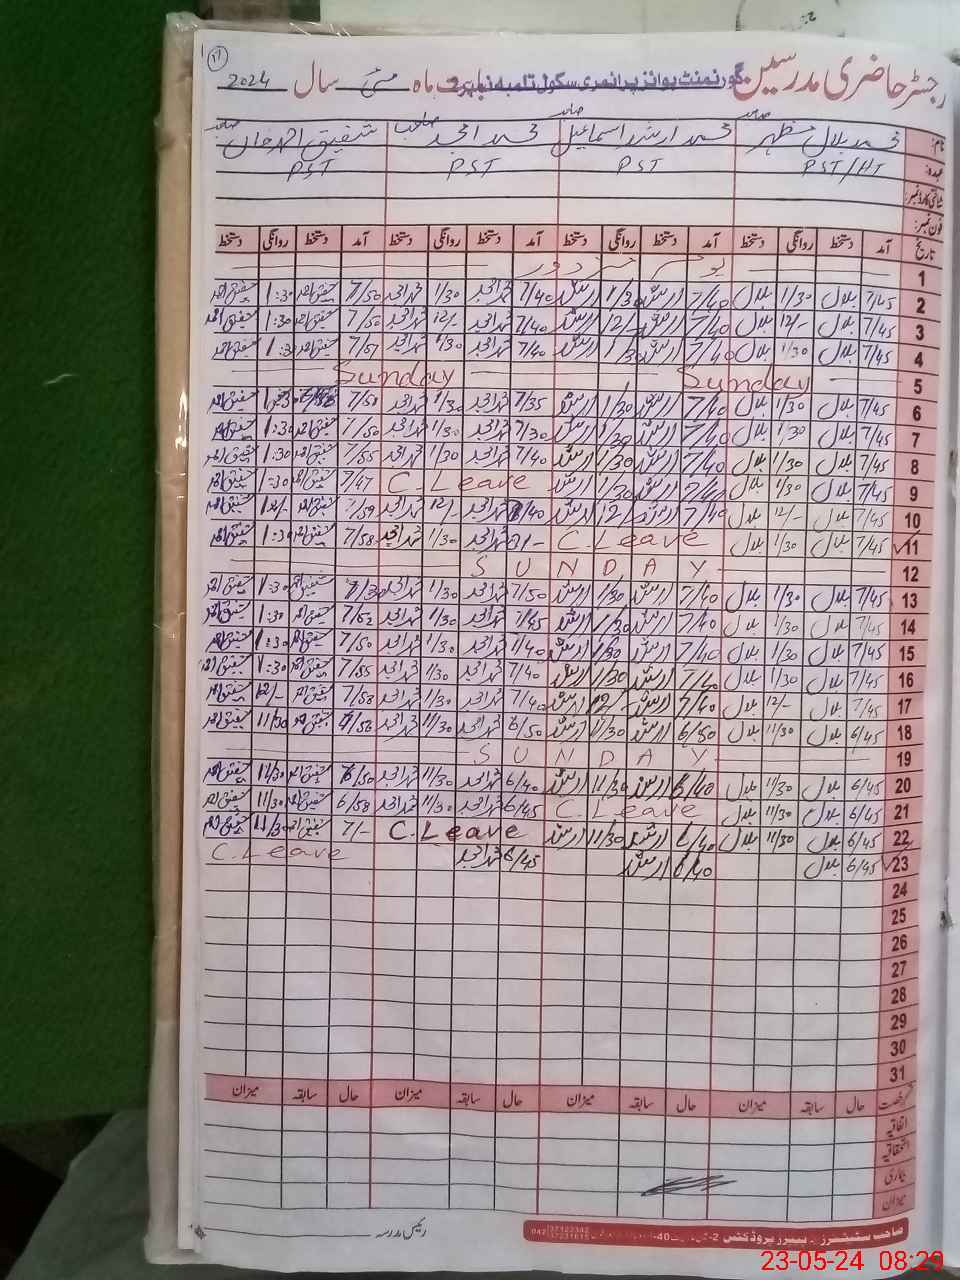 رجسٹر حاضری مدرسین گورنمنٹ بوائز پرائمری سکول تلمبہ نمبر 2 بابت ماہ مئی سال 2024
نام: محمد بلال مظہر صاحب محمد ارشد اسماعیل صاحب محمد امجد صاحب شفیق احمد خاں صاحب
عہدہ: PST/HT PST PST PST
شناختی کارڈ نمبر:
فون نمبر:
تاریخ آمد دستخط روانگی دستخط آمد دستخط روانگی دستخط آمد دستخط روانگی دستخط آمد دستخط روانگی دستخط
1 یوم مزدور
2 7/45 بلال 1/30 بلال 7/40 ارشد 1/30 ارشد 7/40 محمد امجد 1/30 محمد امجد 7/50 شفیق احمد 1:30 شفیق احمد
3 7/45 بلال 12/- بلال 7/40 ارشد 12/- ارشد 7/40 محمد امجد 12/- محمد امجد 7/50 شفیق احمد 1:30 شفیق احمد
4 7/45 بلال 1/30 بلال 7/40 ارشد 1/30 ارشد 7/40 محمد امجد 1/30 محمد امجد 7/57 شفیق احمد 1:30 شفیق احمد
5 Sunday Sunday
6 7/45 بلال 1/30 بلال 7/40 ارشد 1/30 ارشد 7/35 محمد امجد 1/30 محمد امجد 7/50 شفیق احمد
7 7/45 بلال 1/30 بلال 7/40 ارشد 1/30 ارشد 7/30 محمد امجد 1/30 محمد امجد 7/50 شفیق احمد 1:30 شفیق احمد
8 7/45 بلال 1/30 بلال 7/40 ارشد 1/30 ارشد 7/40 محمد امجد 1/30 محمد امجد 7/55 شفیق احمد 1:30 شفیق احمد
9 7/45 بلال 1/30 بلال 7/40 ارشد 1/30 ارشد C.Leave 7/47 شفیق احمد 1:30 شفیق احمد
10 7/45 بلال 12/- بلال 7/40 ارشد 12/- ارشد محمد امجد 12/- محمد امجد 7/59 شفیق احمد 12/- شفیق احمد
11 7/45 بلال 1/30 بلال C.Leave محمد امجد 1/30 محمد امجد 7/58 شفیق احمد 1:30 شفیق احمد
12 SUNDAY
13 7/45 بلال 1/30 بلال 7/40 ارشد 1/30 ارشد 7/50 محمد امجد 1/30 محمد امجد شفیق احمد 1:30 شفیق احمد
14 7/45 بلال 1/30 بلال 7/40 ارشد 1/30 ارشد 7/45 محمد امجد 1/30 محمد امجد 7/52 شفیق احمد 1:30 شفیق احمد
15 7/45 بلال 1/30 بلال 7/40 ارشد 1/30 ارشد 7/40 محمد امجد 1/30 محمد امجد 7/50 شفیق احمد 1:30 شفیق احمد
16 7/45 بلال 1/30 بلال 7/40 ارشد 1/30 ارشد 7/40 محمد امجد 1/30 محمد امجد 7/55 شفیق احمد 1:30 شفیق احمد
17 7/45 بلال 12/- بلال 7/40 ارشد 12/- ارشد 7/40 محمد امجد 1/30 محمد امجد 7/58 شفیق احمد 12/- شفیق احمد
18 6/45 بلال 11/30 بلال 6/50 ارشد 11/30 ارشد 6/50 محمد امجد 11/30 محمد امجد شفیق احمد 11/30 شفیق احمد
19 SUNDAY
20 6/45 بلال 11/30 بلال 6/40 ارشد 11/30 ارشد 6/40 محمد امجد 11/30 محمد امجد 6/50 شفیق احمد 11/30 شفیق احمد
21 6/45 بلال 11/30 بلال C.Leave 6/45 محمد امجد 11/30 محمد امجد 6/58 شفیق احمد 11/30 شفیق احمد
22 6/45 بلال 11/30 بلال 6/40 ارشد 11/30 ارشد C.Leave 7/- شفیق احمد 11/30 شفیق احمد
23 6/45 بلال 6/40 ارشد 6/45 محمد امجد C.Leave
24
25
26
27
28
29
30
31
رخصت حال سابقہ میزان حال سابقہ میزان حال سابقہ میزان حال سابقہ میزان
اتفاقیہ
استحقاقیہ
بیماری
میزان
رئیس مدرسہ
صاحب سٹیشنرز پیپرز پروڈکٹس
042 37122342
37231615
23-05-24 08:29